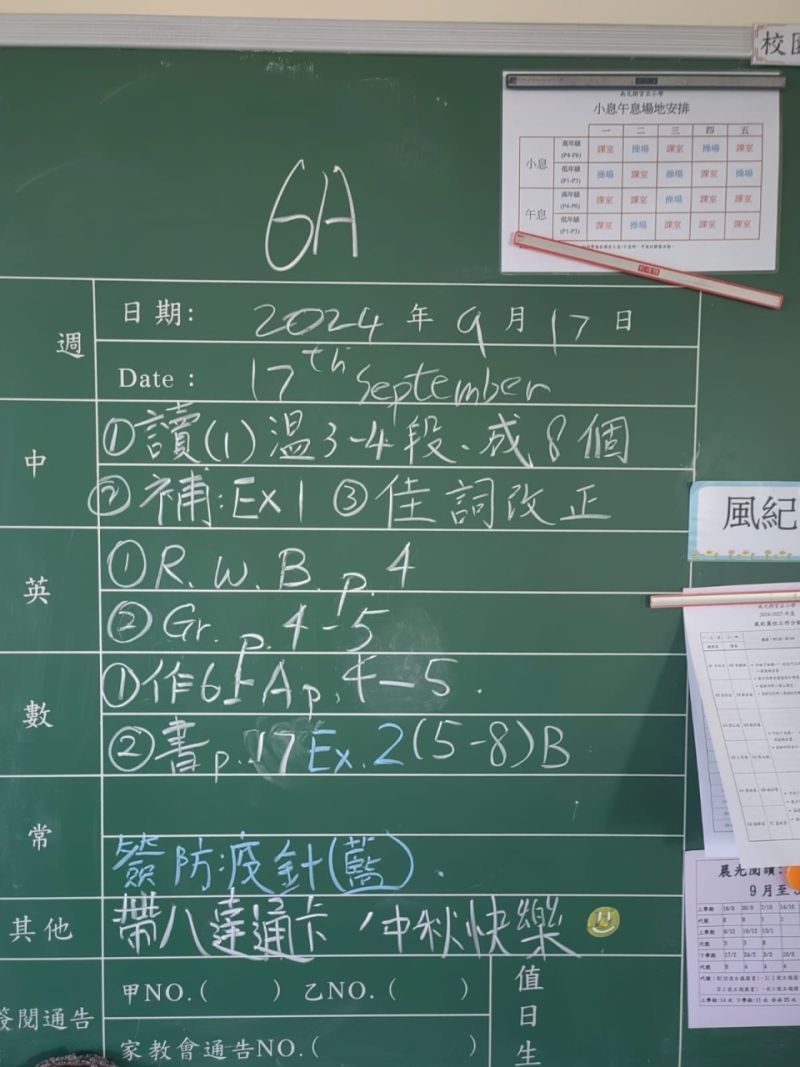 校園
小息午息場地安排
一 二 三 四 五
小息 高年級 (P4-P6) 課室 操場 課室 操場 課室
低年級 (P1-P3) 操場 課室 操場 課室 操場
午息 高年級 (P4-P6) 課室 課室 操場 課室 課室
低年級 (P1-P3) 課室 操場 課室 課室 課室
6A
週
日期: 2024 年 9 月 17 日
Date : 17th September
中
①讀(1)溫3-4段、成8個
②補:Ex 1 ③佳詞改正
英
①R.W.B. p.4
②Gr. p.4-5
數
①作6上A p.4-5.
②書p.17 Ex.2(5-8)B
常
簽防疫針(藍).
其他
帶八達通卡,中秋快樂
簽閱通告
甲NO.( ) 乙NO.( )
家教會通告NO.( )
值日生
風紀
晨光閱讀:
9月至